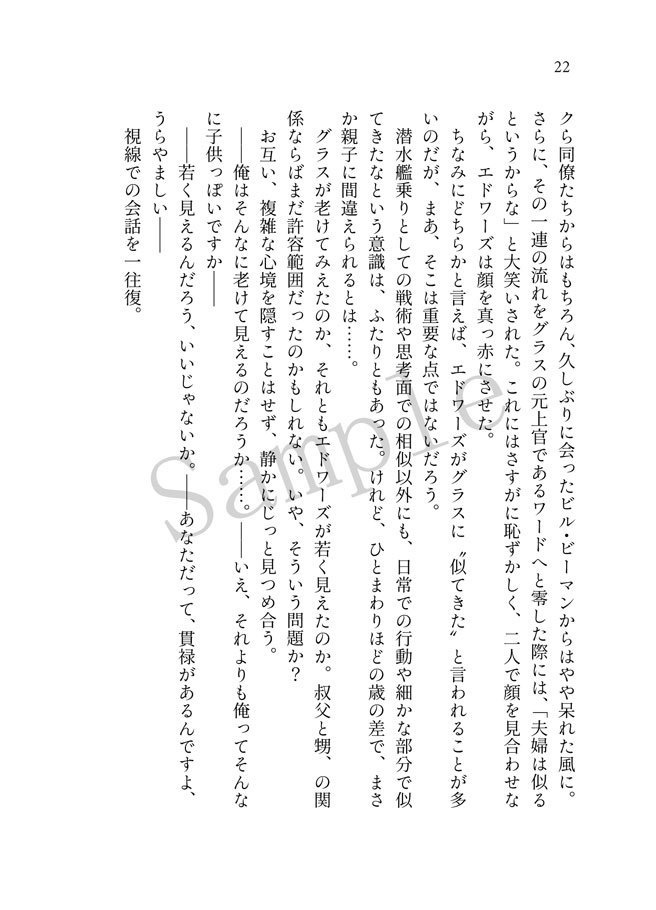 22
クら同僚たちからはもちろん、久しぶりに会ったビル・ビーマンからはやや呆れた風に。
さらに、その一連の流れをグラスの元上官であるワードへと零した際には、「夫婦は似る
というからな」と大笑いされた。これにはさすがに恥ずかしく、二人で顔を見合わせな
がら、エドワーズは顔を真っ赤にさせた。
ちなみにどちらかと言えば、エドワーズがグラスに〝似てきた〟と言われることが多
いのだが、まあ、そこは重要な点ではないだろう。
潜水艦乗りとしての戦術や思考面での相似以外にも、日常での行動や細かな部分で似
てきたなという意識は、ふたりともあった。けれど、ひとまわりほどの歳の差で、まさ
か親子に間違えられるとは……。
グラスが老けてみえたのか、それともエドワーズが若く見えたのか。叔父と甥、の関
係ならばまだ許容範囲だったのかもしれない。いや、そういう問題か？
お互い、複雑な心境を隠すことはせず、静かにじっと見つめ合う。
――俺はそんなに老けて見えるのだろうか……。――いえ、それよりも俺ってそんな
に子供っぽいですか――
――若く見えるんだろう、いいじゃないか。――あなただって、貫禄があるんですよ、
うらやましい――
視線での会話を一往復。
Sample